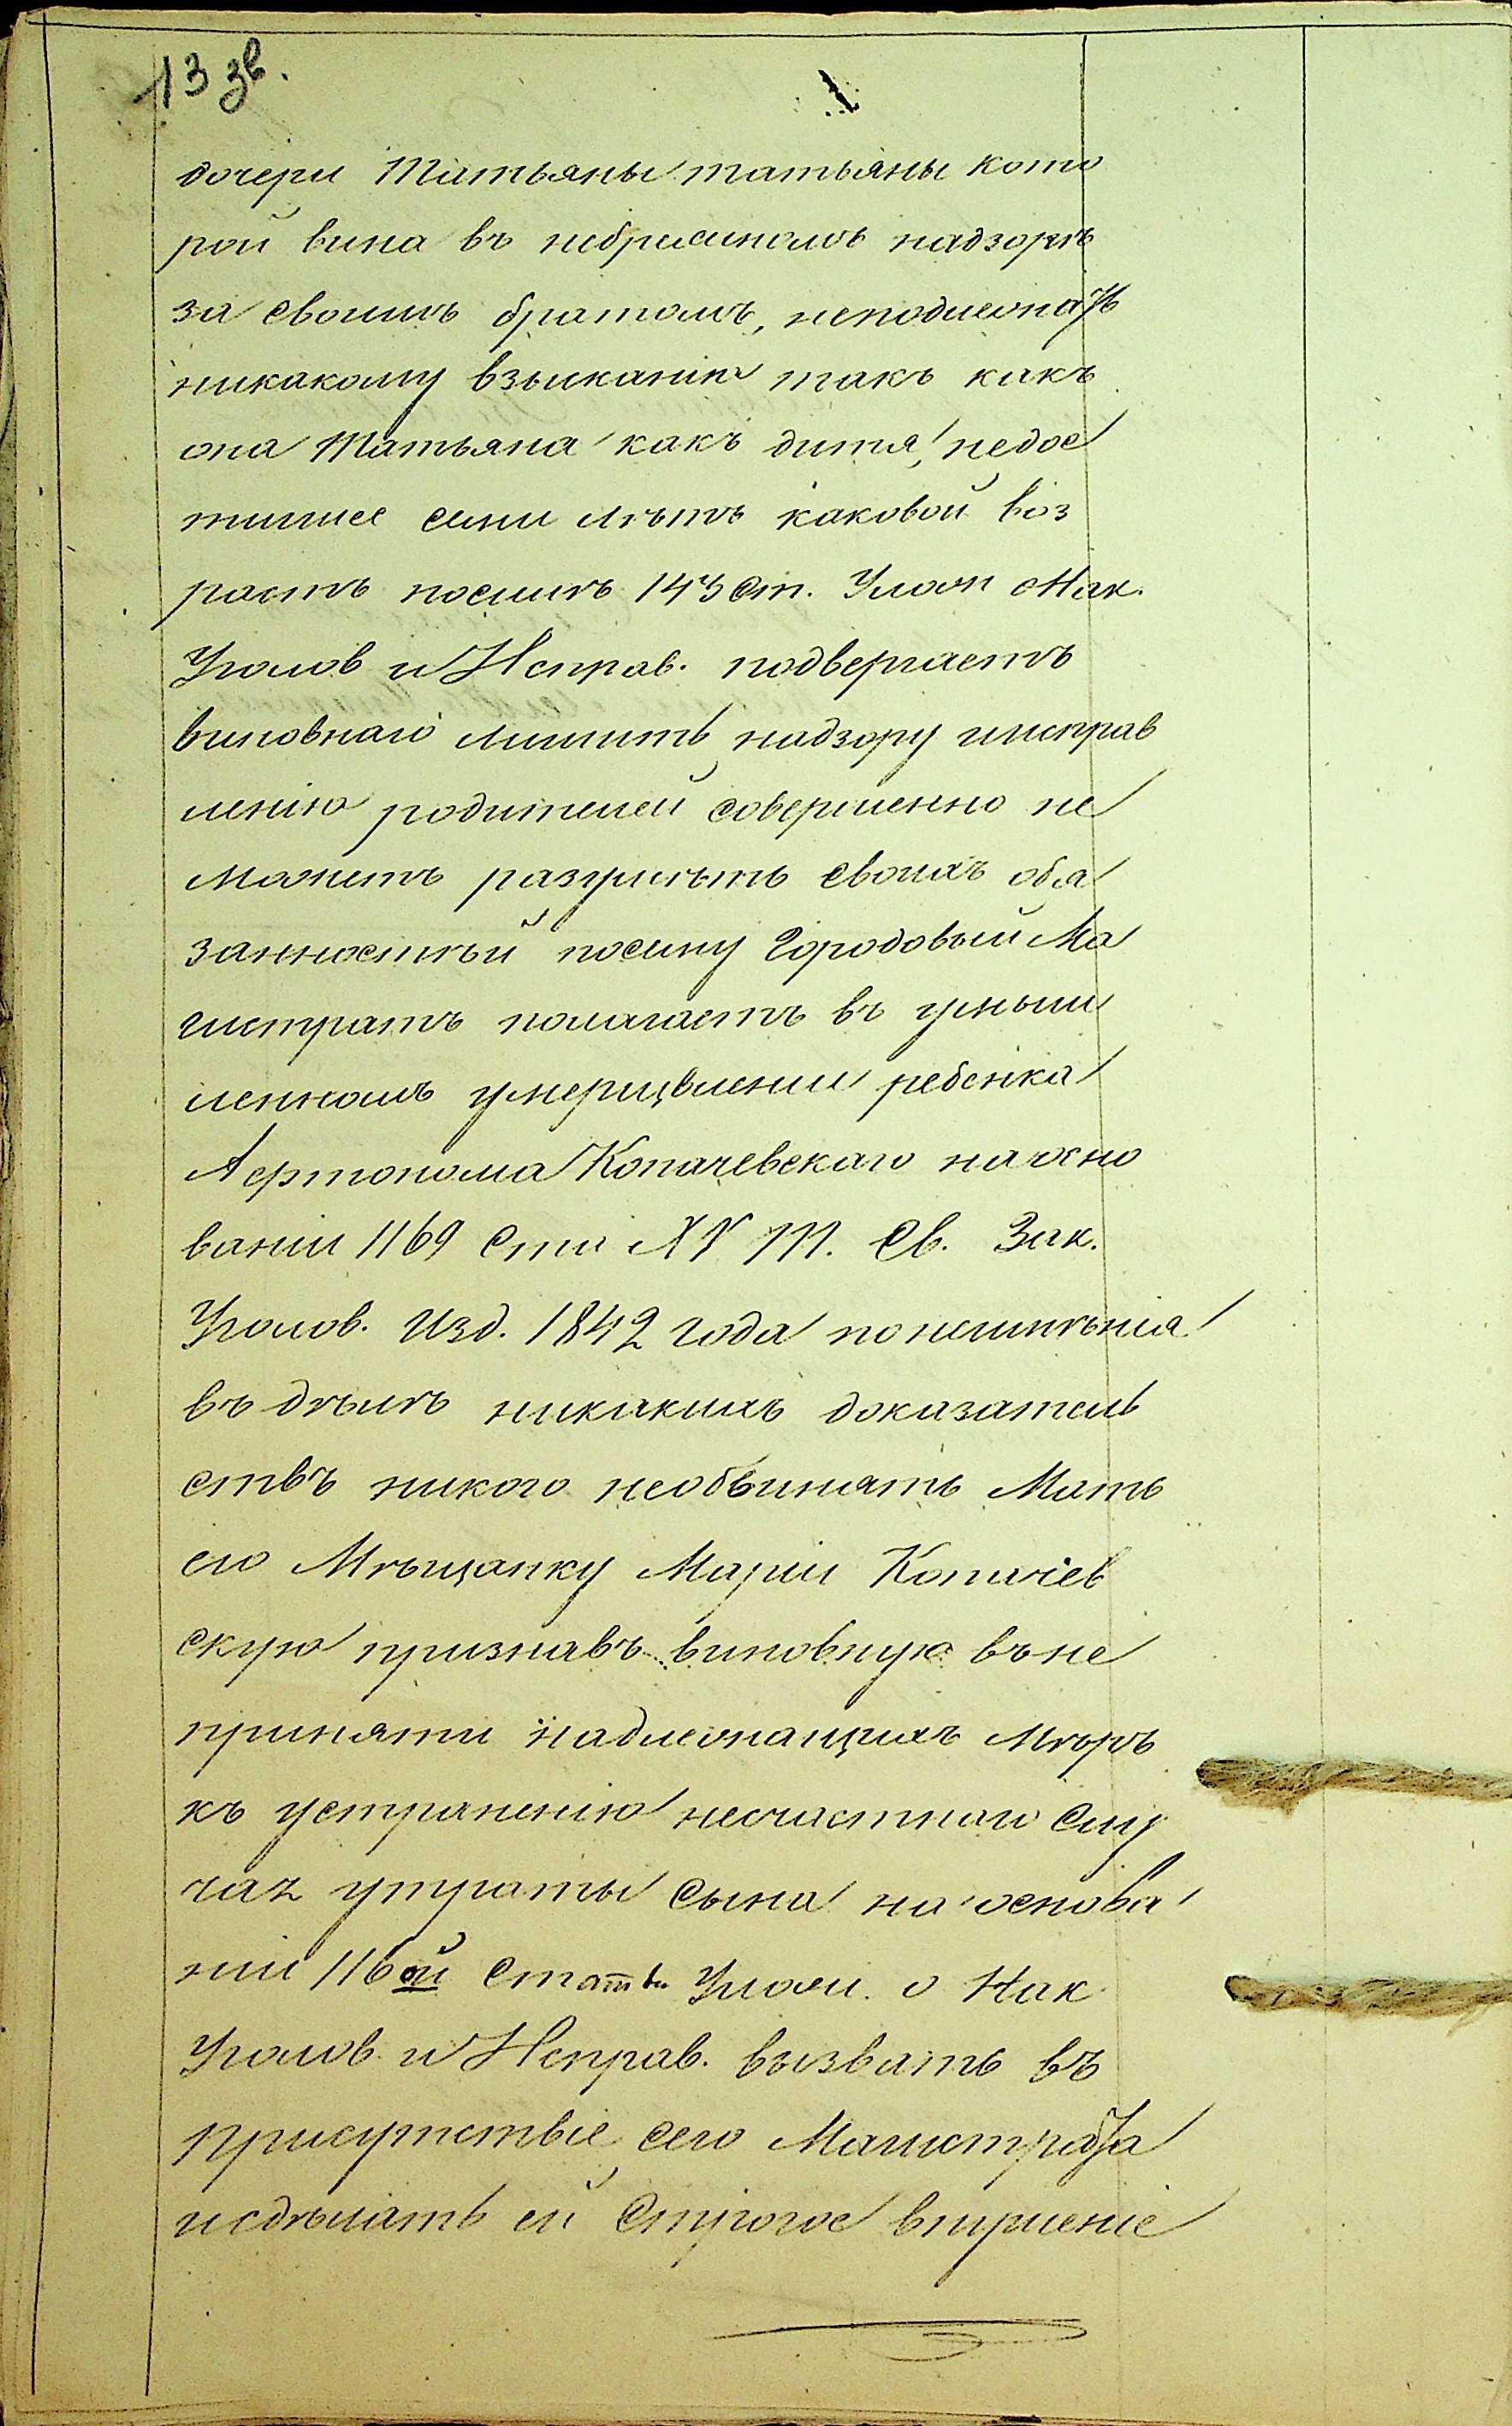 13 зв.
дочери Татьяны татьяны кото
рой вина въ небрежномъ надзорѣ
за своимъ братомъ, неподлежатъ
никакому взысканію такъ какъ
она Татьяна какъ дитя, недос
тигшее семи лѣтъ каковой воз
растъ посилѣ 143 Ст. Улож о Нак.
Уголов и Исправ. подвергаетъ
виновнаго лишить надзору иисправ
ленію родителей совершенно не
можетъ разумѣть своихъ обя
занностѣй посему Городовый Ма
гистратъ полагаетъ въ умыш
ленномъ умерщвлении ребенка
Копачевскаго наосно
ваніи 1169 Сти XV Т. Св. Зак.
Уголов. Изд. 1842 года понеимѣнія
въ дѣлѣ никакихъ доказатель
ствъ никого необвинять Мать
его Мѣщанку Марію Копачев
скую признавъ виновную въне
приняти надлежащихъ Мѣръ
къ устраненію несчастнаго Слу
чая утраты Сына на основа
ніи 116ой Статьи Улож. о Нак
Уголов и Исправ. вызвать въ
присутствіе сего Магистрата
исдѣлать ей Строгое внушеніе